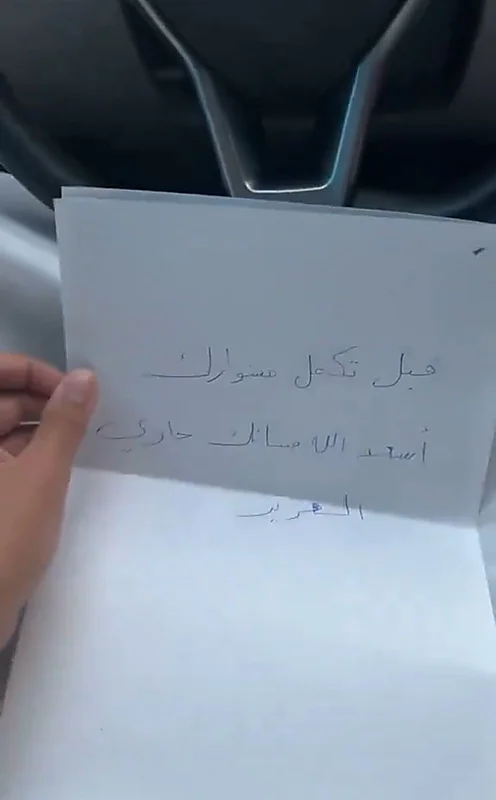 قبل تكمل مشوارك
أسعد الله مسائك جاري
العزيز